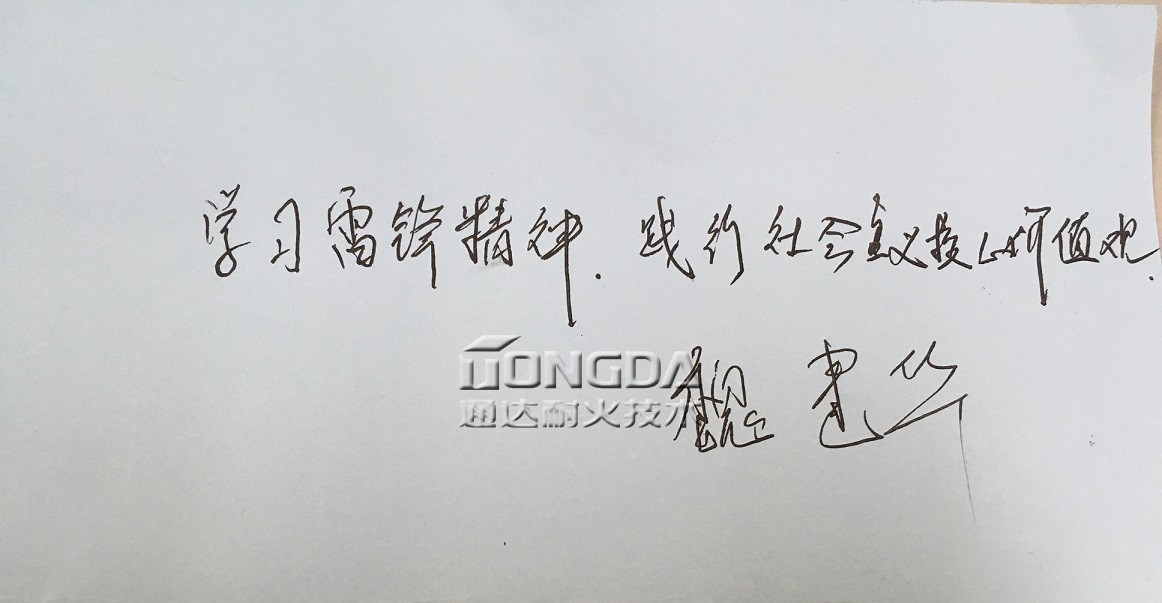 学习雷锋精神.践行社会主义核心价值观.
TONGDA
通达耐火技术
魏建华